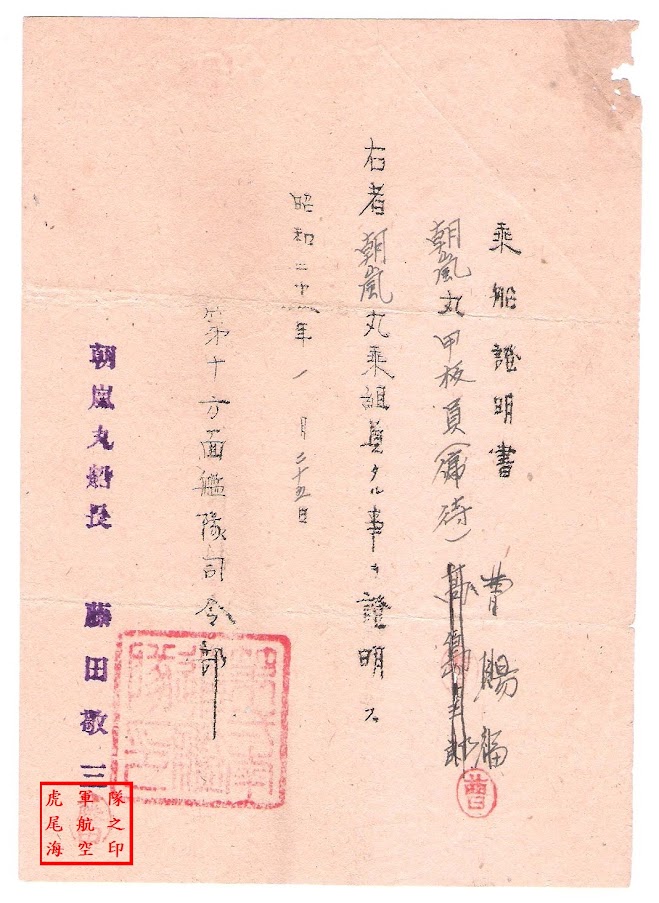 乘船證明書
曹賜福
朝嵐丸甲板員(雇待)
曹
右者朝嵐丸乘組員タル事ヲ證明ス
昭和二十年一月二十五日
第十方面艦隊司令部
朝嵐丸船長 藤田敬三
虎尾海
軍航空
隊之印